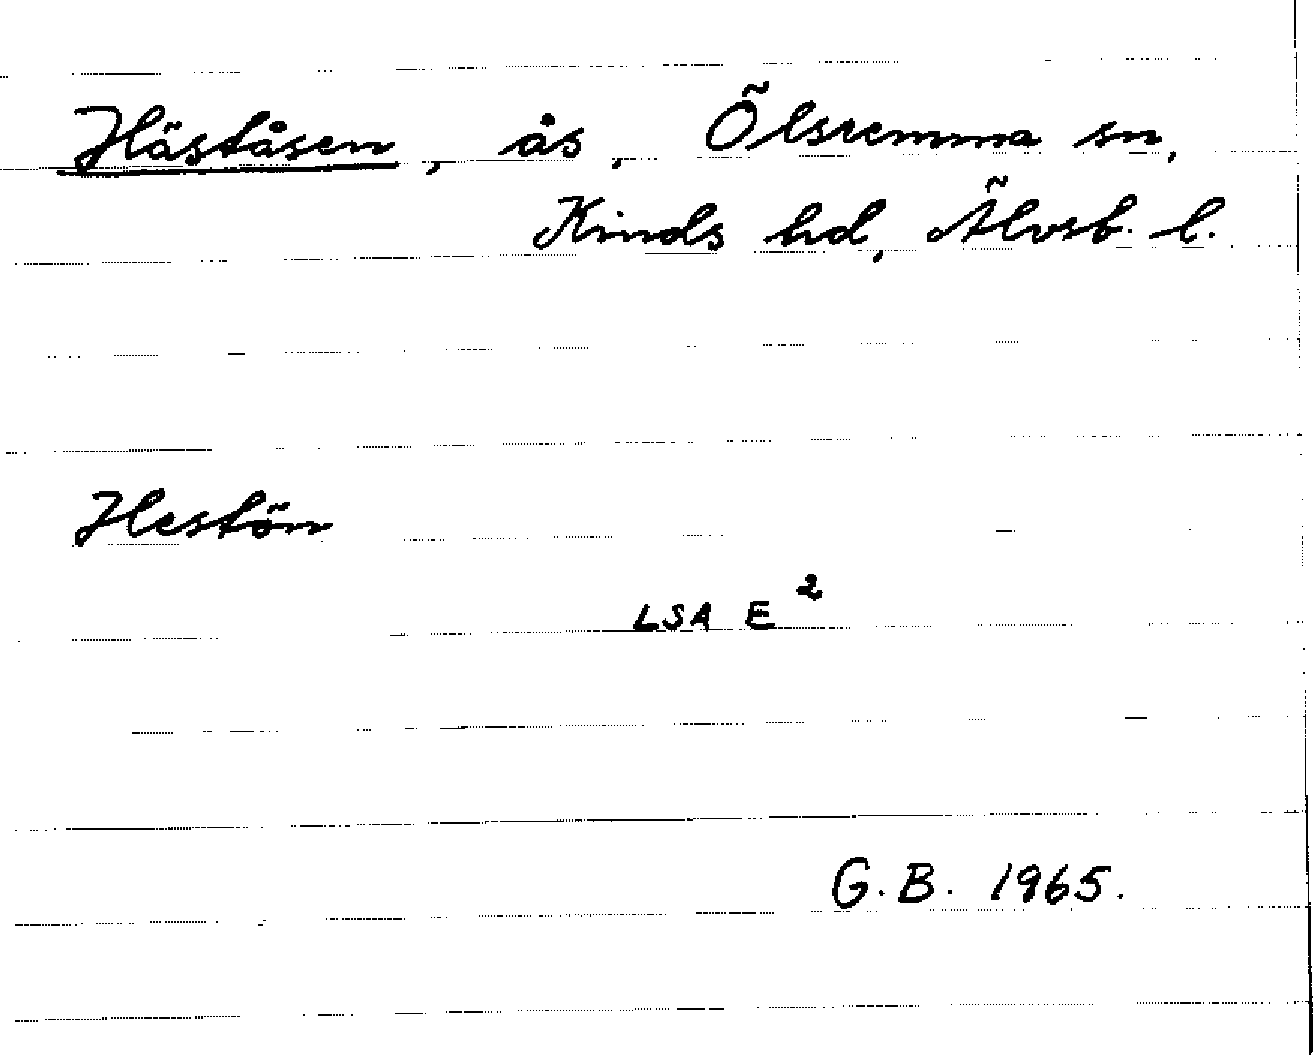 Häståsen, ås, Ölsremma sn,
Kinds hd, Älvsb. l.
Hestön
LSA E²
G.B. 1965.